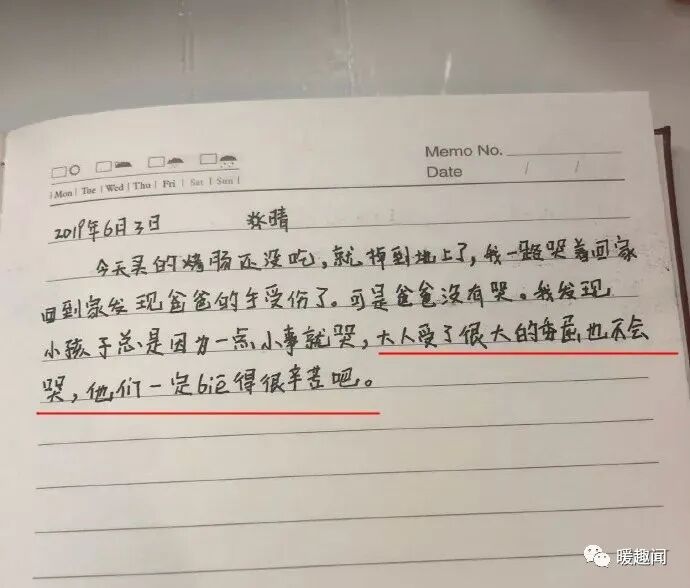 Memo No.
Date / /
Mon Tue Wed Thu Fri Sat Sun
2019年6月3日 晴
今天买的烤肠还没吃,就掉到地上了,我一路哭着回家
回到家发现爸爸的手受伤了。可是爸爸没有哭。我发现
小孩子总是因为一点小事就哭,大人受了很大的委屈也不会
哭,他们一定bie得很辛苦吧。
暖趣闻